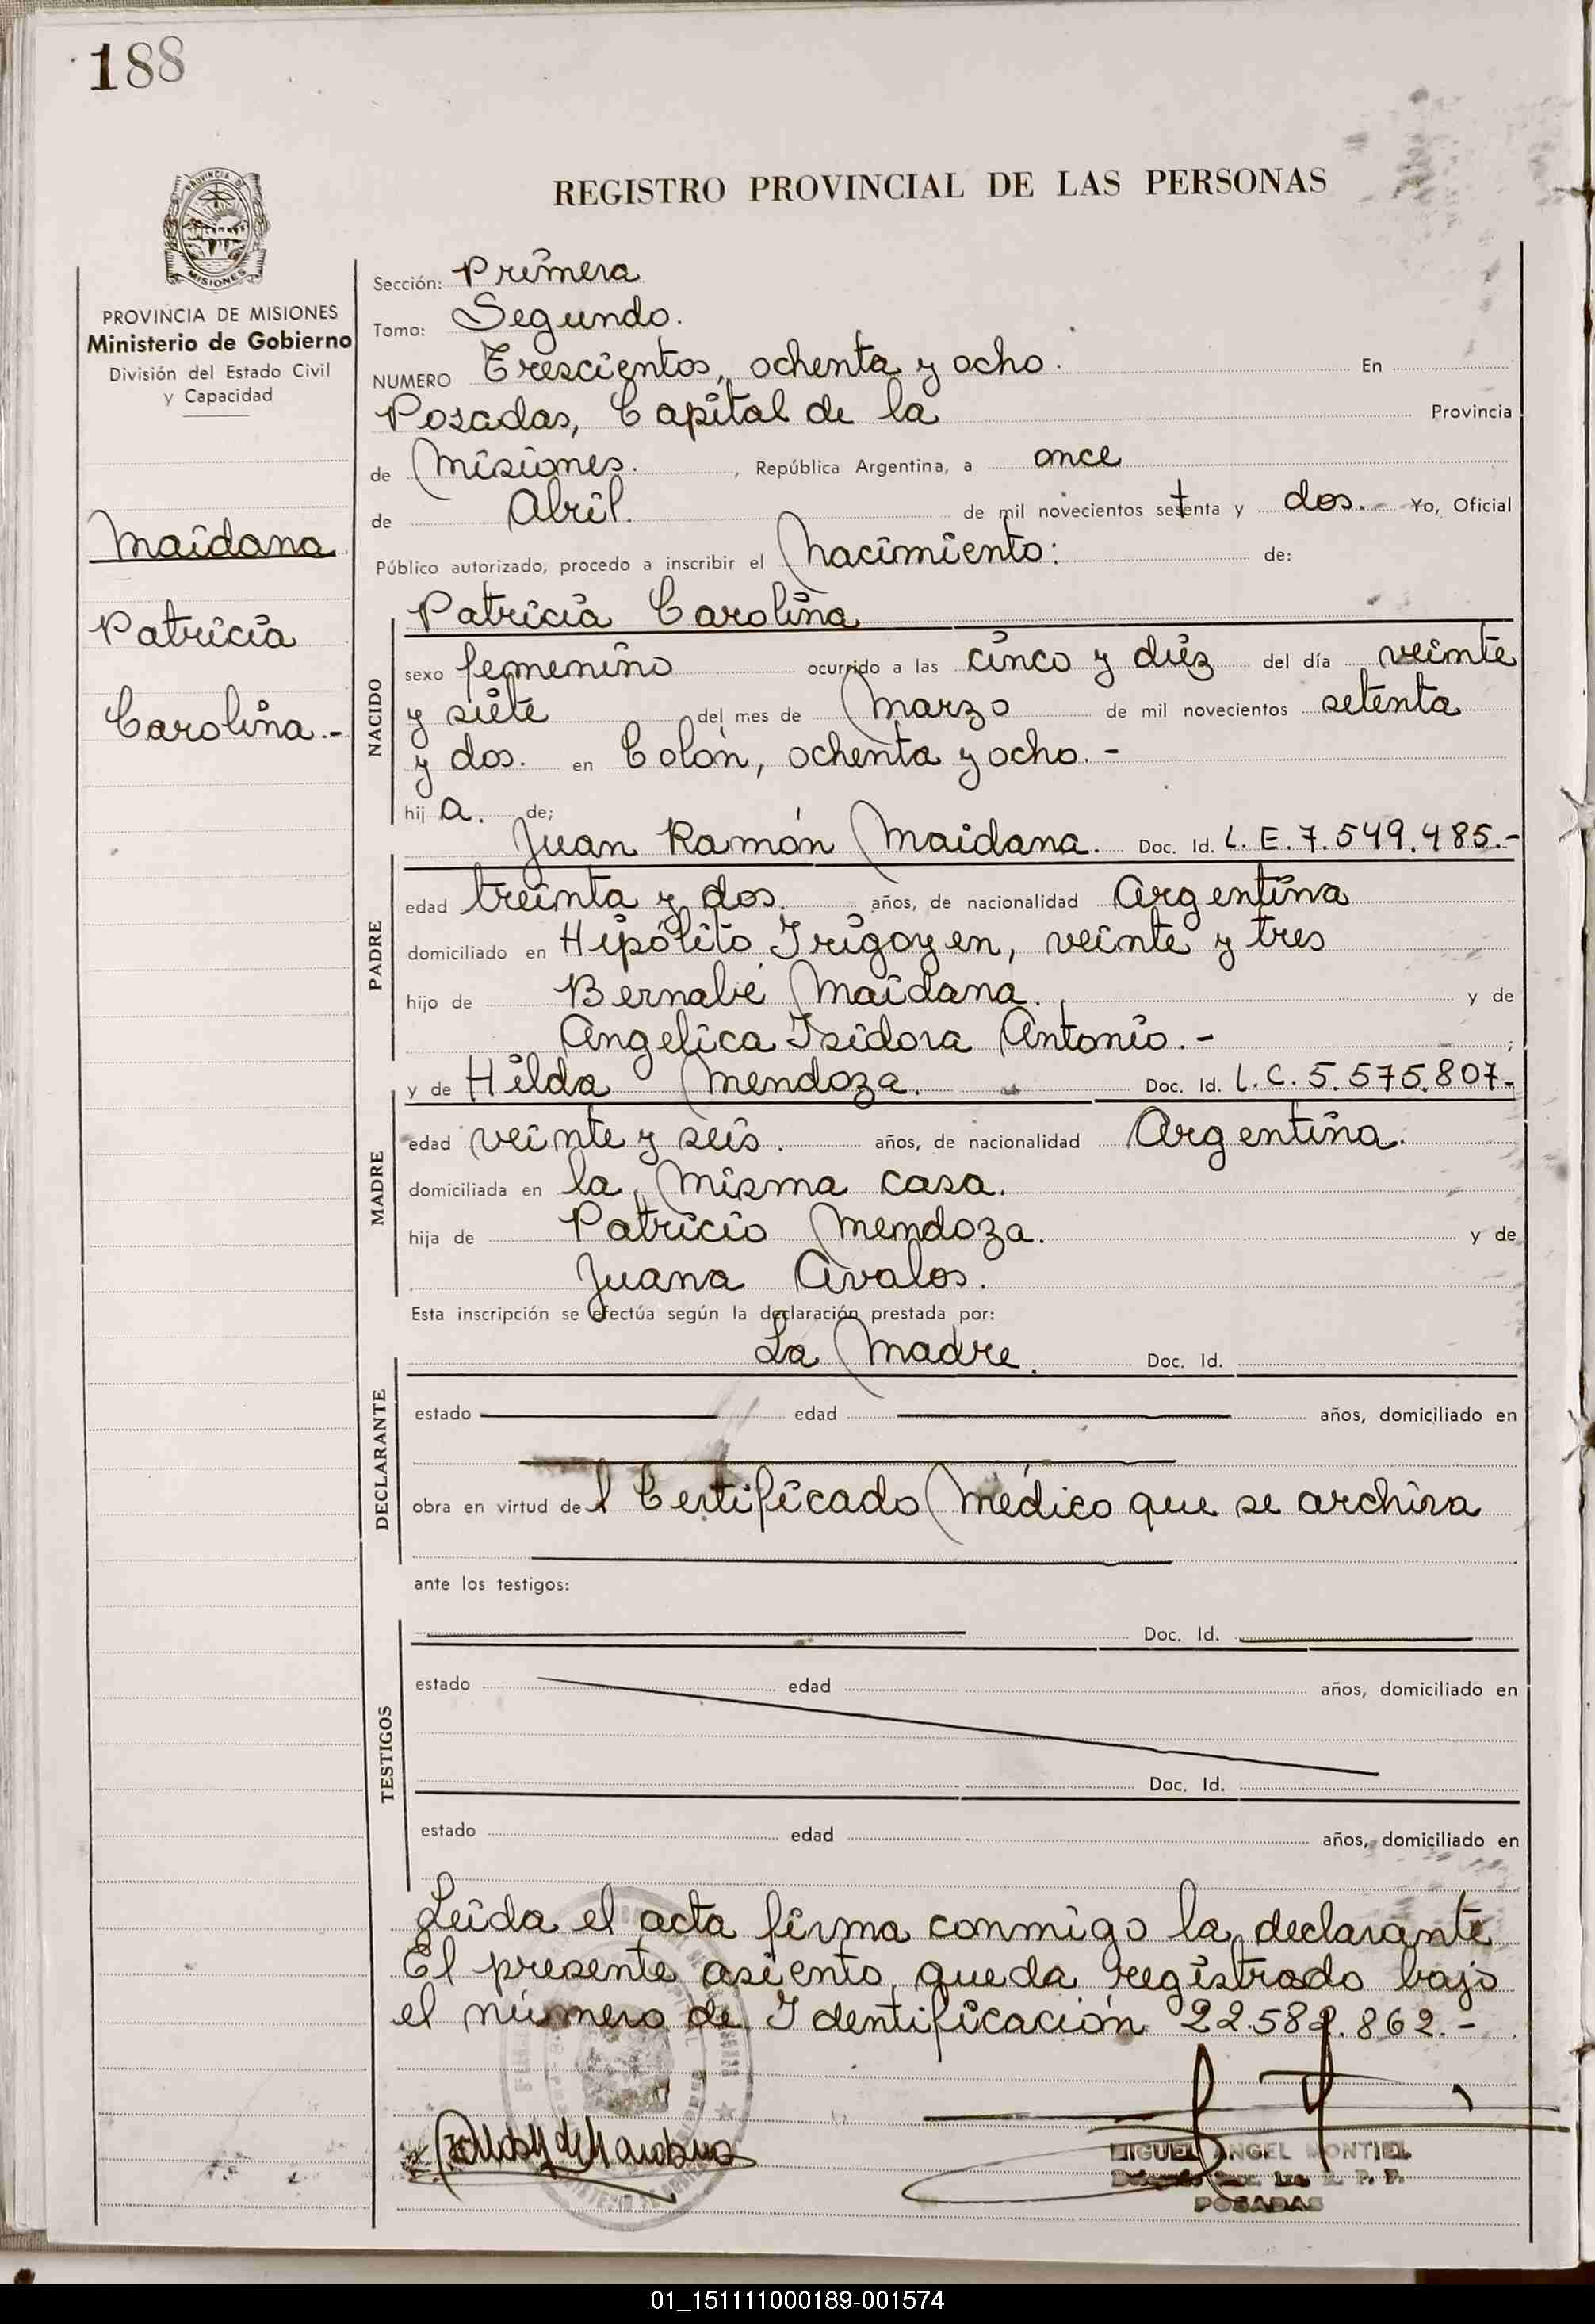 188
PROVINCIA DE MISIONES
REGISTRO PROVINCIAL DE LAS PERSONAS
PROVINCIA DE MISIONES
Ministerio de Gobierno
División del Estado Civil
y Capacidad
Maidana
Patricia
Carolina.-
Sección: Primera
Tomo: Segundo.
NUMERO Trescientos, ochenta y ocho. En
Posadas, Capital de la Provincia
de Misiones. , República Argentina, a once
de Abril. de mil novecientos setenta y dos. Yo, Oficial
Público autorizado, procedo a inscribir el Nacimiento: de:
NACIDO
Patricia Carolina
sexo femenino ocurrido a las cinco y diez del día veinte
y siete del mes de Marzo de mil novecientos setenta
y dos. en Colón, ochenta y ocho.-
hij a. de;
PADRE
Juan Ramón Maidana. Doc. Id. L. E. 7.549.485.-
edad treinta y dos. años, de nacionalidad Argentina
domiciliado en Hipólito Irigoyen, veinte y tres
hijo de Bernabé Maidana. y de
Angelica Isidora Antonio.- ;
MADRE
y de Hilda Mendoza. Doc. Id. L.C. 5.575.807.-
edad veinte y seis. años, de nacionalidad Argentina.
domiciliada en la misma casa.
hija de Patricio Mendoza. y de
Juana Avalos.
Esta inscripción se efectúa según la declaración prestada por:
DECLARANTE
La Madre. Doc. Id.
estado edad años, domiciliado en
obra en virtud de l Certificado Médico que se archiva
ante los testigos:
TESTIGOS
Doc. Id.
estado edad años, domiciliado en
Doc. Id.
estado edad años, domiciliado en
Leida el acta firma conmigo la declarante
El presente asiento queda registrado bajo
el número de Identificación 22.582.862.-
MIGUEL ANGEL MONTIEL
R. P. P.
POSADAS
01_151111000189-001574